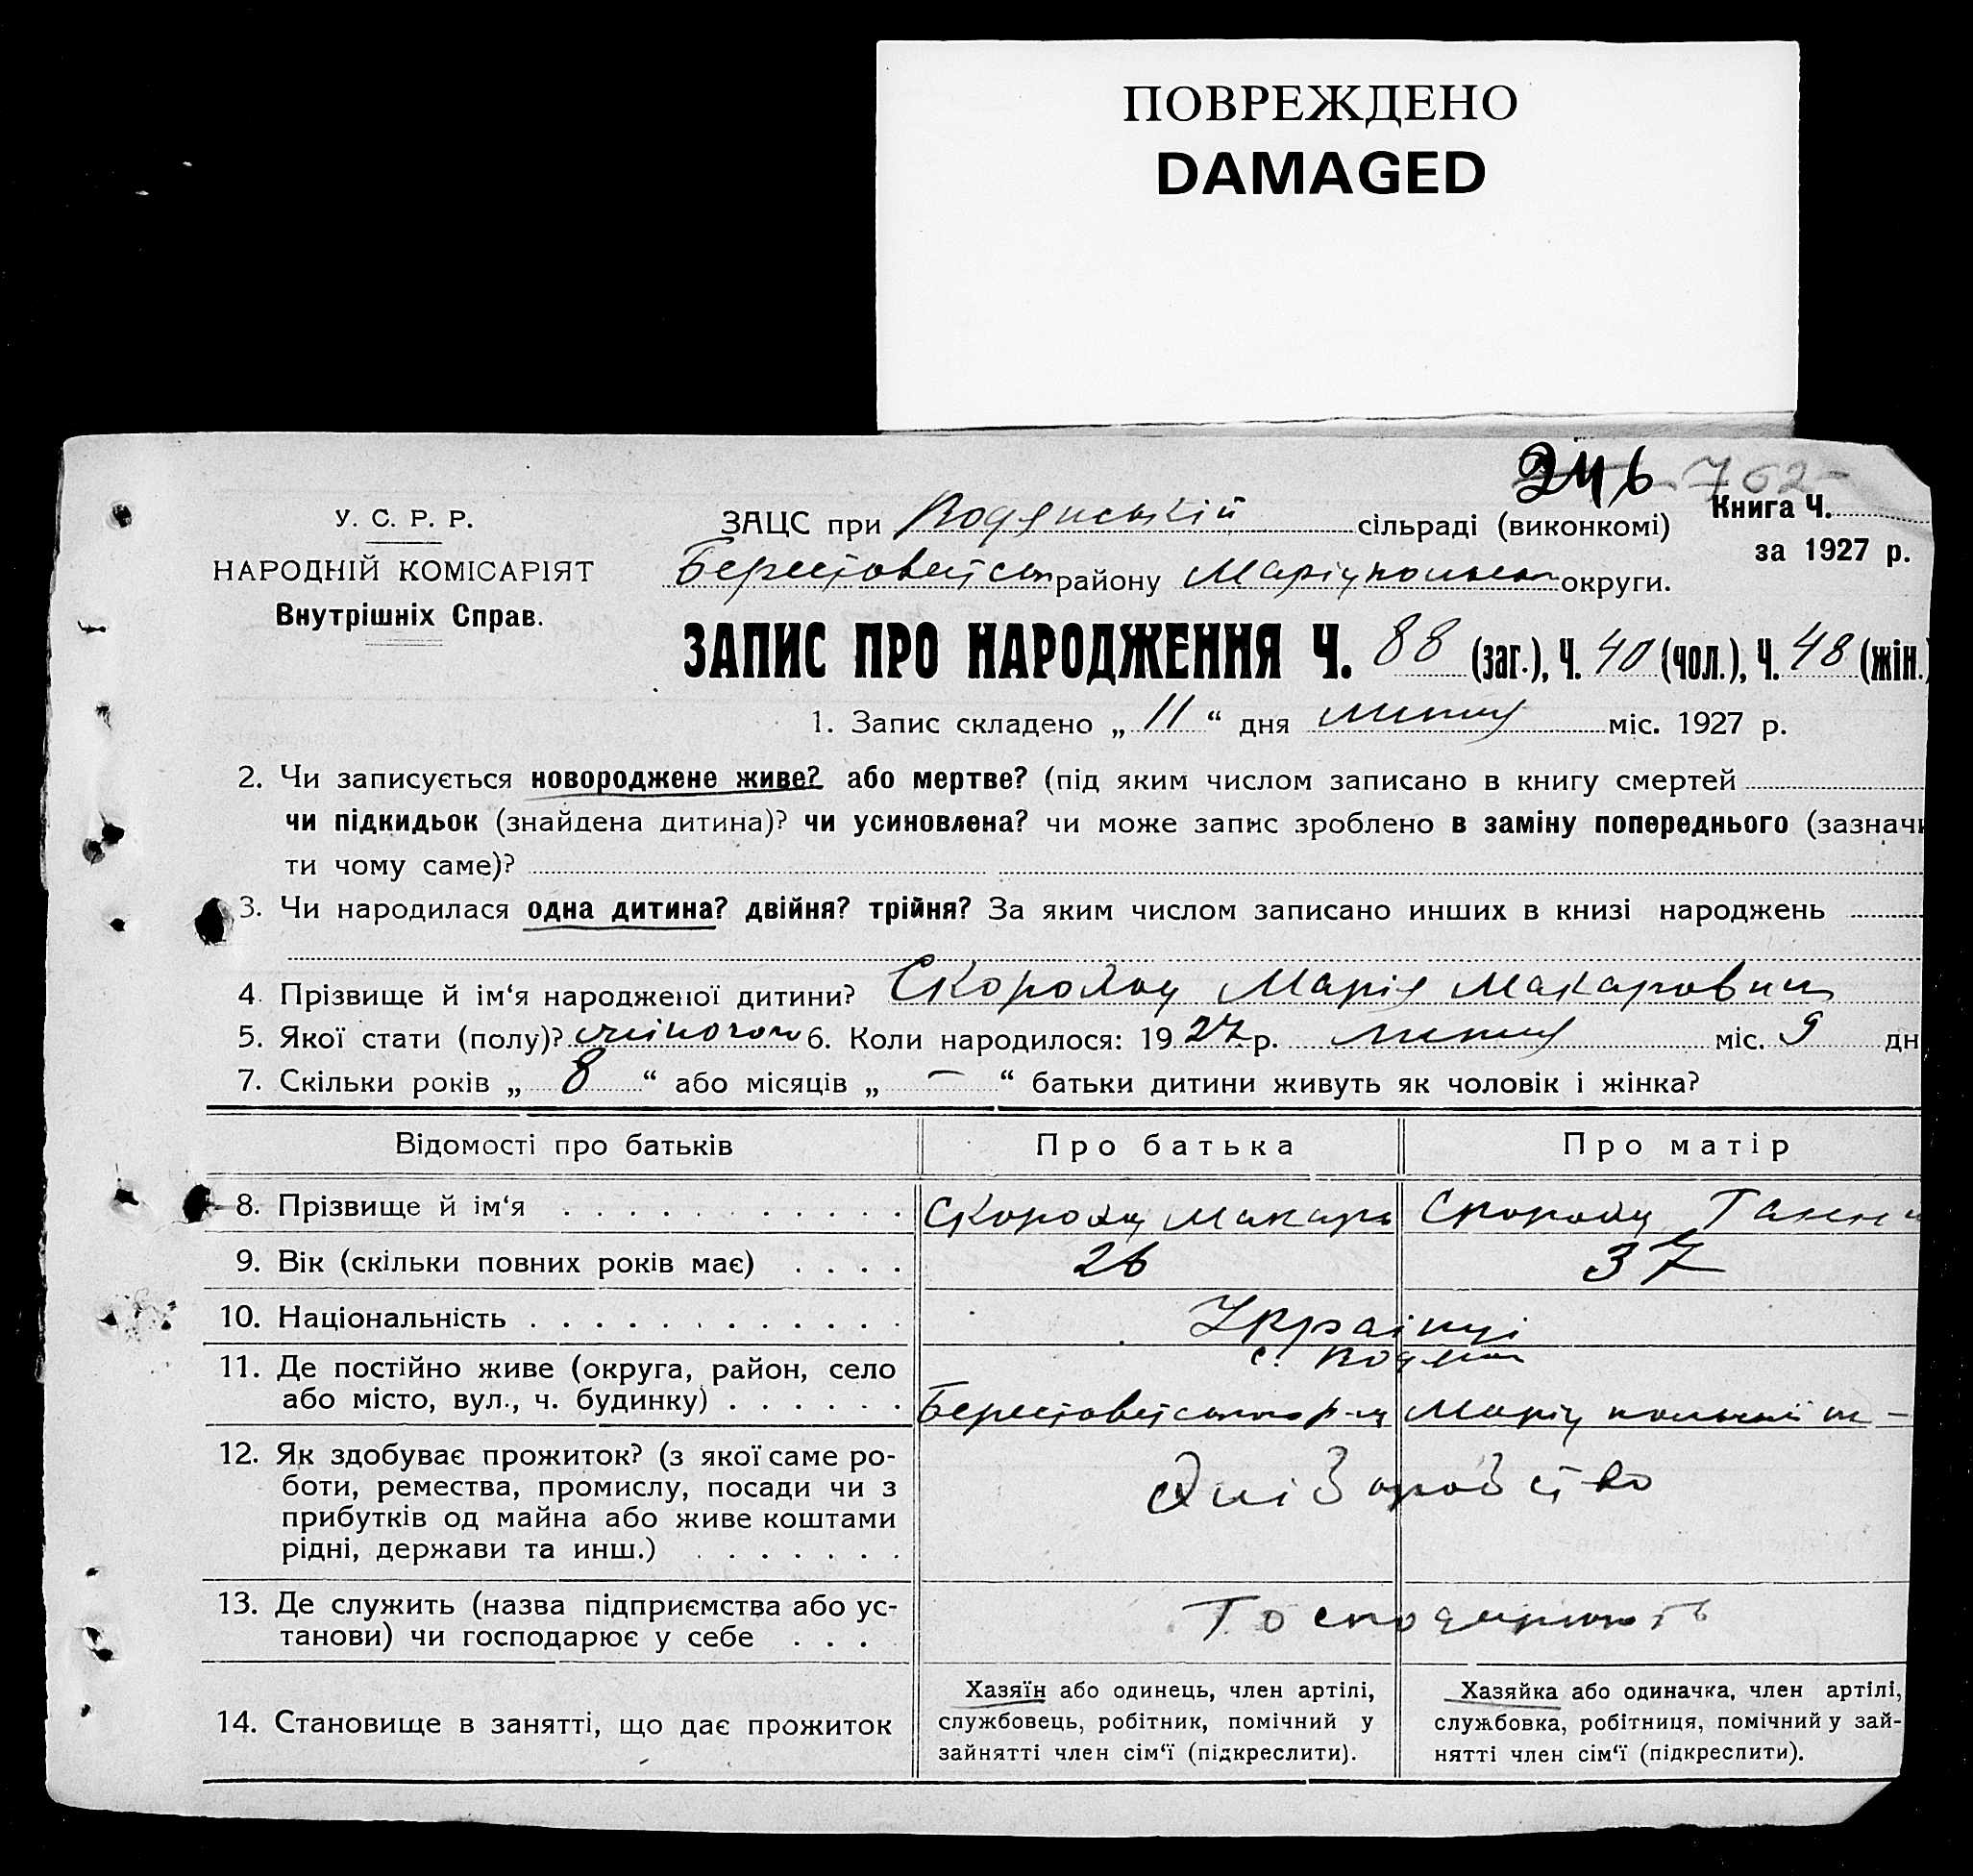 ПОВРЕЖДЕНО
DAMAGED
246 762-
У. С. Р. Р.
НАРОДНІЙ КОМІСАРІЯТ
Внутрішніх Справ.
Книга Ч.
за 1927 р.
ЗАЦС при Водянській сільраді (виконкомі)
району округи.
ЗАПИС ПРО НАРОДЖЕННЯ Ч. 88 (заг.), Ч. 40 (чол.), Ч. 48 (жін.)
1. Запис складено „ 11 “ дня липня міс. 1927 р.
2. Чи записується новороджене живе? або мертве? (під яким числом записано в книгу смертей
чи підкидьок (знайдена дитина)? чи усиновлена? чи може запис зроблено в заміну попереднього (зазначи
ти чому саме)?
3. Чи народилася одна дитина? двійня? трійня? За яким числом записано инших в книзі народжень
4. Прізвище й ім‘я народженої дитини? Марія
5. Якої стати (полу)? жіночої 6. Коли народилося: 1927 р. липня міс. 9 дн
7. Скільки років „ 8 “ або місяців „ — “ батьки дитини живуть як чоловік і жінка?
Відомості про батьків Про батька Про матір
8. Прізвище й ім‘я Макар Ганна
9. Вік (скільки повних років має) 26 37
10. Національність Українці
11. Де постійно живе (округа, район, село
або місто, вул., ч. будинку)
12. Як здобуває прожиток? (з якої саме ро-
боти, ремества, промислу, посади чи з
прибутків од майна або живе коштами
рідні, держави та инш.)
Хліборобство
13. Де служить (назва підприємства або ус-
танови) чи господарює у себе
Господарюють
14. Становище в занятті, що дає прожиток
Хазяїн або одинець, член артілі,
службовець, робітник, помічний у
зайнятті член сім‘ї (підкреслити).
Хазяйка або одиначка, член артілі,
службовка, робітниця, помічний у зай-
нятті член сім‘ї (підкреслити).